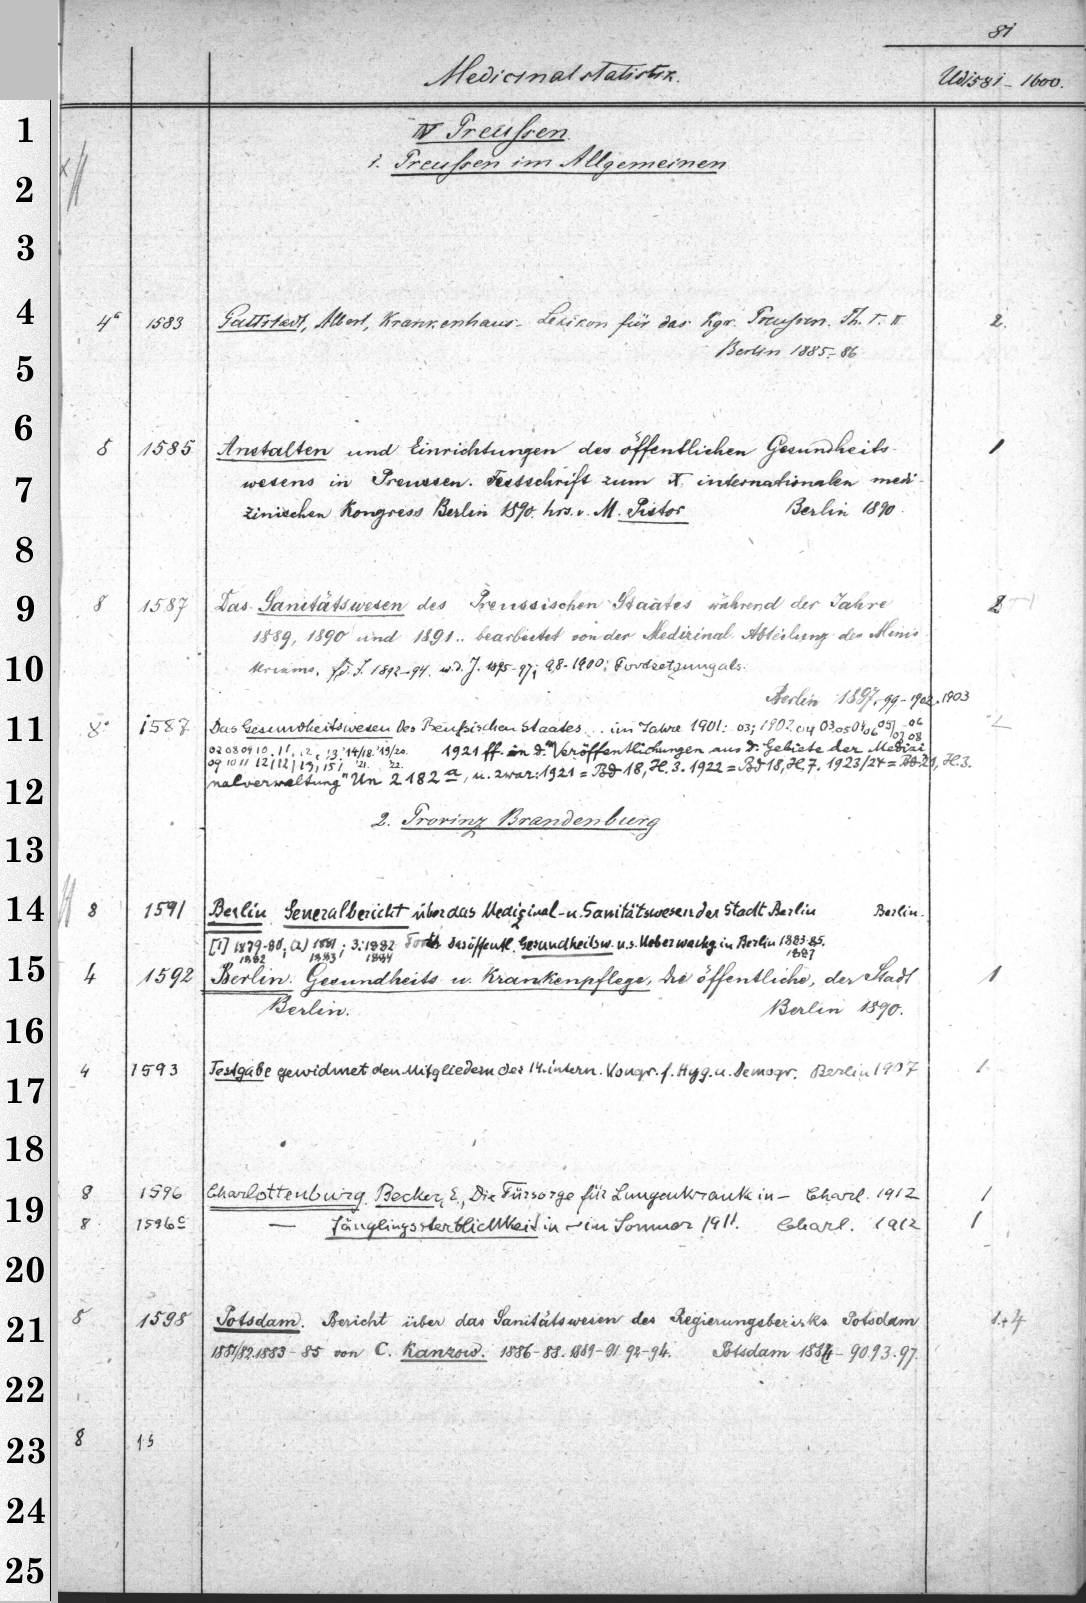 81
Medicinalstatistik. Ud1581-1600.
IV Preussen.
1. Preussen im Allgemeinen
1
2
3
4 4° 1583 Guttstadt, Albert, Krankenhaus-Lexikon für das Kgr. Preussen. Th. I. II 2.
Berlin 1885-86
5
6 8 1585 Anstalten und Einrichtungen des öffentlichen Gesundheits- 1
7 wesens in Preussen. Festschrift zum X. internationalen medi-
zinischen Kongress Berlin 1890. hrs. v. M. Pistor Berlin 1890.
8
9 8 1587 Das Sanitätswesen des Preussischen Staates während der Jahre 2
1889, 1890 und 1891.. bearbeitet von der Medizinal Abteilung des Minis
10 teriums. f. d. J. 1892-94. u. d. J. 1895-97; 98-1900; Fortsetzung als:
Berlin 1897.-99-1902.1903
11 8° 1587 Das Gesundheitswesen des Preußischen Staates .. im Jahre 1901: 03; 1902 04 03 05 04 06
1921 ff. in d. "Veröffentlichungen aus d. Gebiete der Medizi
12 nalverwaltung" Un 2182 a, u. zwar: 1921 = Bd 18, H. 3. 1922 = Bd 18, H. 7. 1923/24 = Bd 21, H. 3.
2. Provinz Brandenburg
13
14 8 1591 Berlin. Generalbericht über das Medizinal- u. Sanitätswesen der Stadt Berlin Berlin.
[1] 1879-80; (2) 1881; 3: 1882 Forts das öffentl. Gesundheitsw. u. s. Ueberwachg in Berlin 1883-85.
1882 1883 1884 1887
15 4 1592 Berlin. Gesundheits u. Krankenpflege, Die öffentliche, der Stadt 1
Berlin. Berlin 1890.
16
17 4 1593 Festgabe gewidmet den Mitgliedern des 14. intern. Kongr. f. Hyg. u. Demogr. Berlin 1907 1
18
19 8 1596 Charlottenburg. Becker, E., Die Fürsorge für Lungenkranke in — Charl. 1912 1
8 1596c — Säuglingssterblichkeit in — im Sommer 1911. Charl. 1912 1
20
21 8 1598 Potsdam. Bericht über das Sanitätswesen des Regierungsbezirks Potsdam 1.+4
1881/82.1883-85 von C. Kanzow. 1886-88. 1889-91. 92-94. Potsdam 1884-90.93.97.
22
23 8 15
24
25